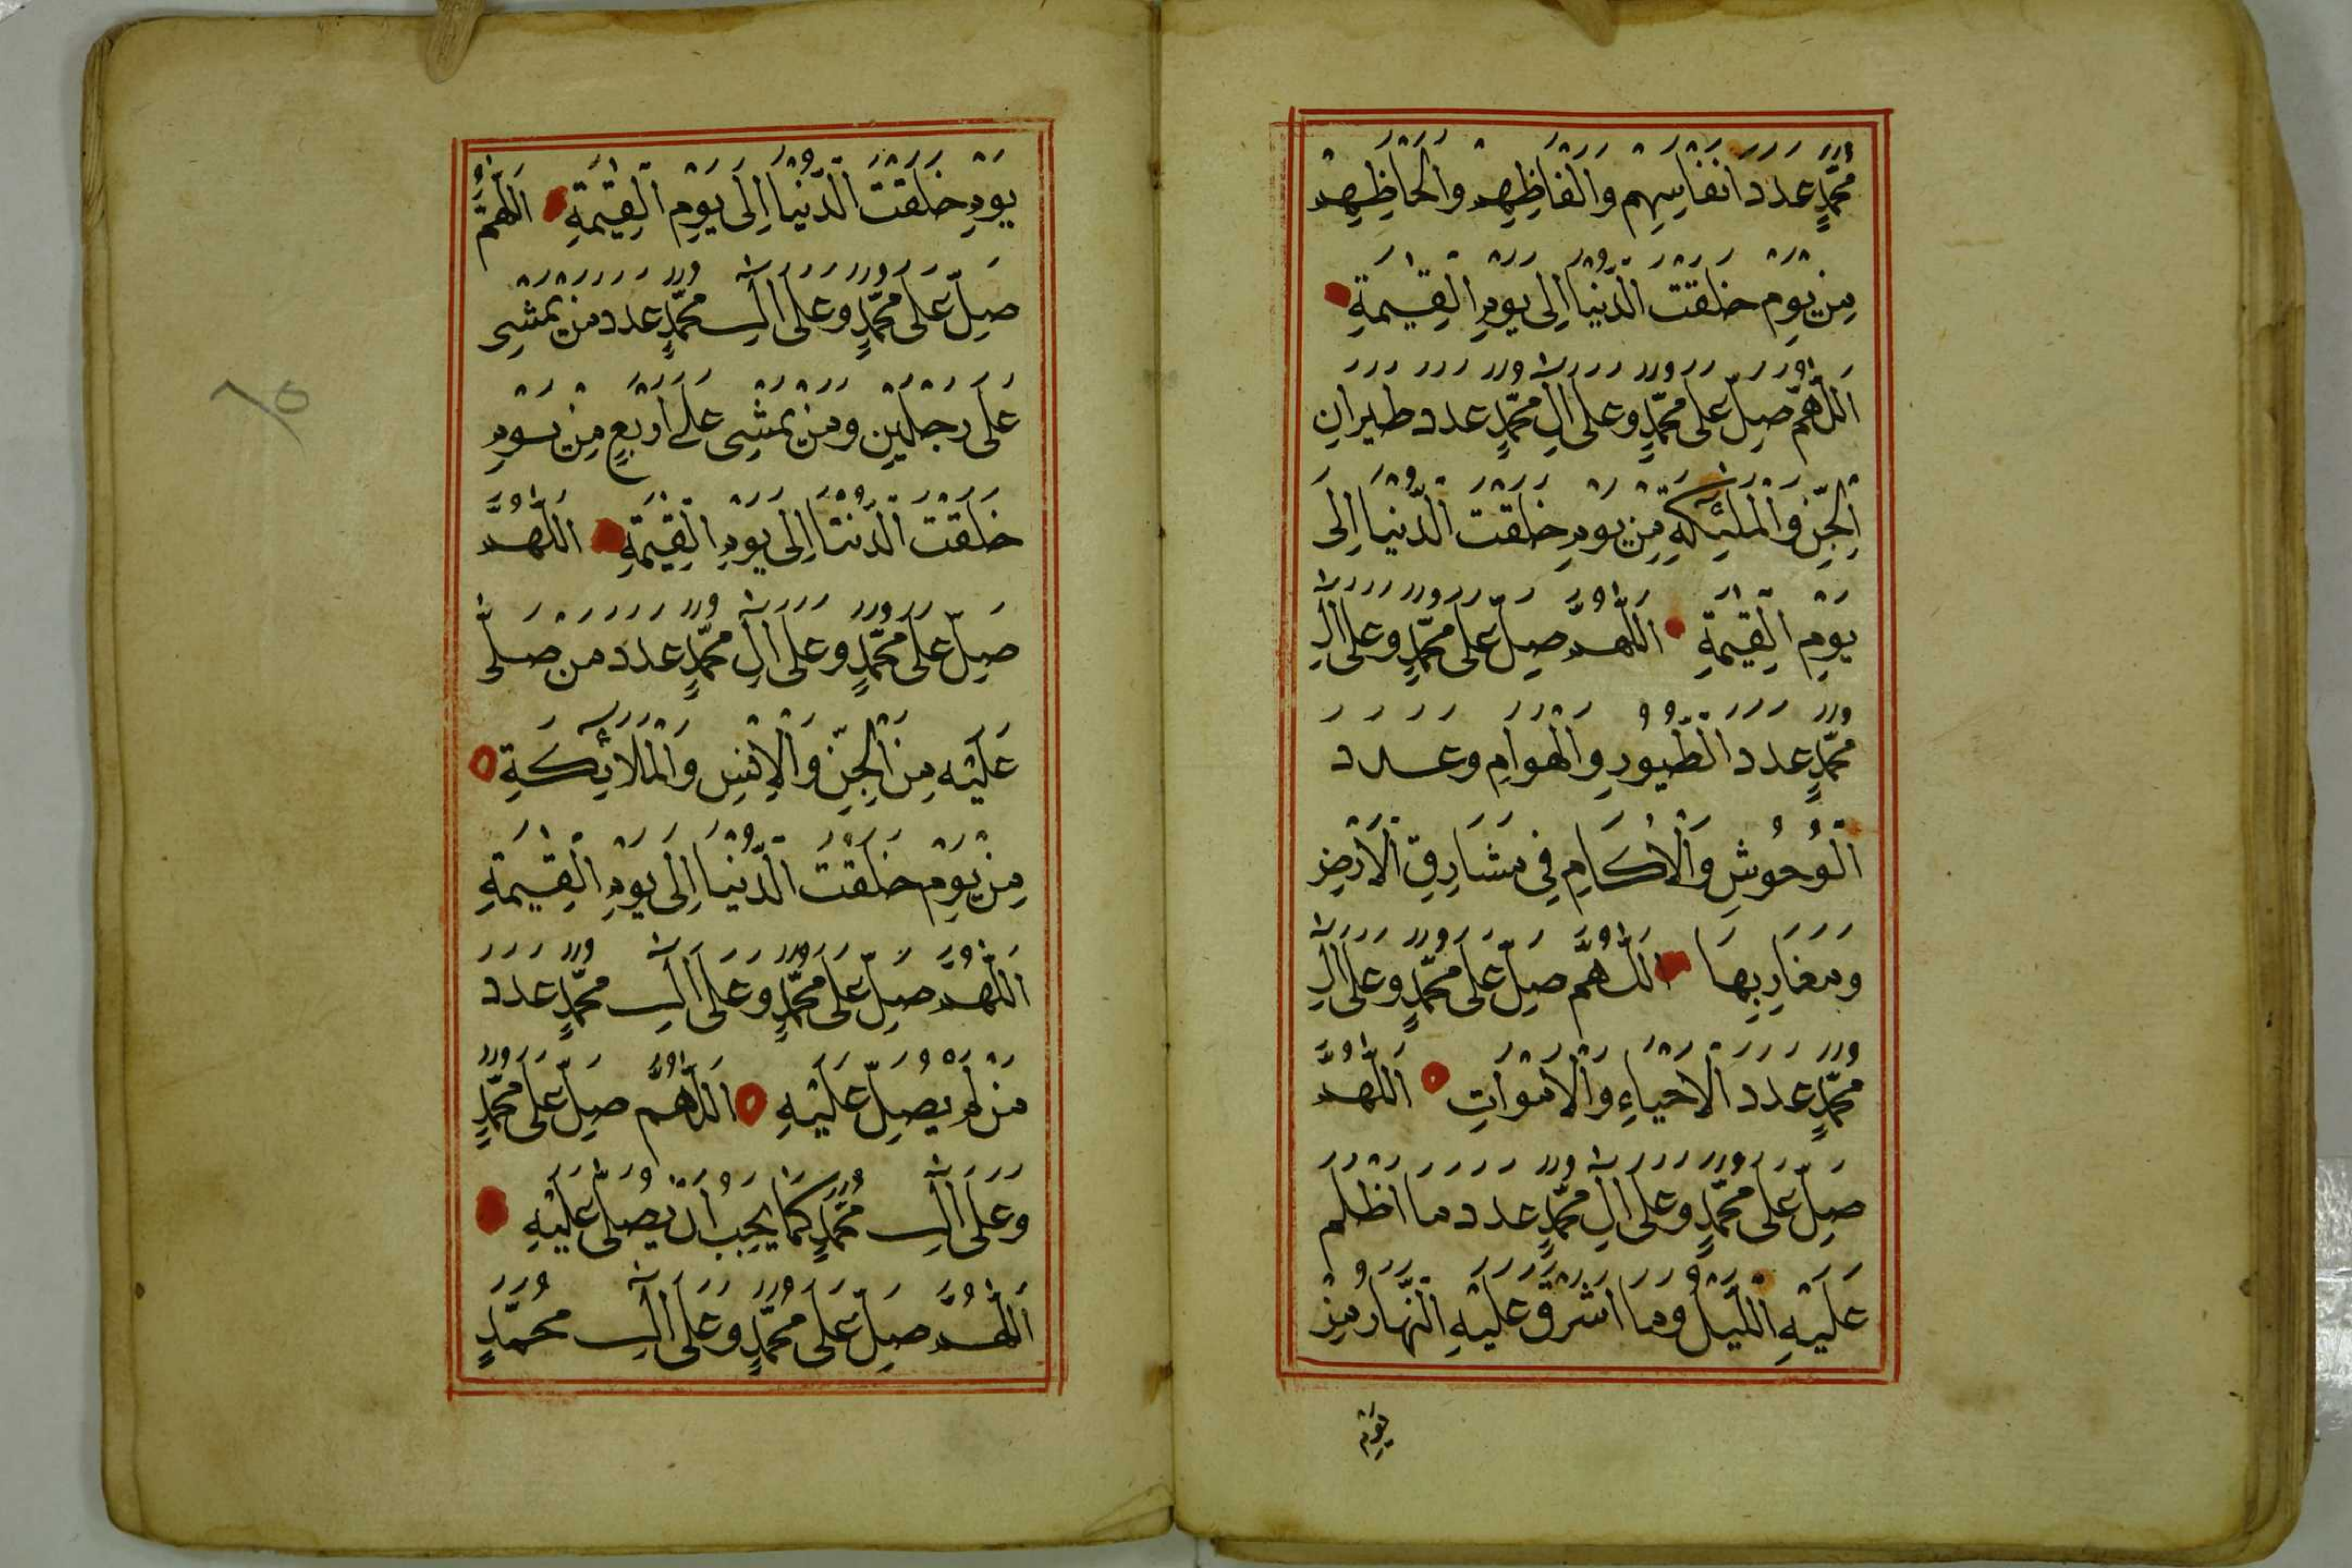 مُحَمَّدٍ عَدَدَ اَنْفَاسِهِمْ وَاَلْفَاظِهِمْ وَاَلْحَاظِهِمْ
مِنْ يَوْمِ خَلَقْتَ الدُّنْيَا اِلَى يَوْمِ الْقِيٰمَةِ
اَللّٰهُمَّ صَلِّ عَلَى مُحَمَّدٍ وَعَلَى اٰلِ مُحَمَّدٍ عَدَدَ طَيَرَانِ
الْجِنِّ وَالْمَلٰئِكَةِ مِنْ يَوْمِ خَلَقْتَ الدُّنْيَا اِلَى
يَوْمِ الْقِيٰمَةِ اَللّٰهُمَّ صَلِّ عَلَى مُحَمَّدٍ وَعَلَى اٰلِ
مُحَمَّدٍ عَدَدَ الطُّيُورِ وَالْهَوَامِ وَعَدَدَ
الْوُحُوشِ وَالْاٰكَامِ فِي مَشَارِقِ الْاَرْضِ
وَمَغَارِبِهَا اَللّٰهُمَّ صَلِّ عَلَى مُحَمَّدٍ وَعَلَى اٰلِ
مُحَمَّدٍ عَدَدَ الْاَحْيَاءِ وَالْاَمْوَاتِ اَللّٰهُمَّ
صَلِّ عَلَى مُحَمَّدٍ وَعَلَى اٰلِ مُحَمَّدٍ عَدَدَ مَا اَظْلَمَ
عَلَيْهِ اللَّيْلُ وَمَا اَشْرَقَ عَلَيْهِ النَّهَارُ مِنْ
يَوْمِ
يَوْمِ خَلَقْتَ الدُّنْيَا اِلَى يَوْمِ الْقِيٰمَةِ اَللّٰهُمَّ
صَلِّ عَلَى مُحَمَّدٍ وَعَلَى اٰلِ مُحَمَّدٍ عَدَدَ مَنْ يَمْشِى
عَلَى رِجْلَيْنِ وَمَنْ يَمْشِى عَلَى اَرْبَعٍ مِنْ يَوْمِ
خَلَقْتَ الدُّنْيَا اِلَى يَوْمِ الْقِيٰمَةِ اَللّٰهُمَّ
صَلِّ عَلَى مُحَمَّدٍ وَعَلَى اٰلِ مُحَمَّدٍ عَدَدَ مَنْ صَلَّى
عَلَيْهِ مِنَ الْجِنِّ وَالْاِنْسِ وَالْمَلَائِكَةِ
مِنْ يَوْمِ خَلَقْتَ الدُّنْيَا اِلَى يَوْمِ الْقِيٰمَةِ
اَللّٰهُمَّ صَلِّ عَلَى مُحَمَّدٍ وَعَلَى اٰلِ مُحَمَّدٍ عَدَدَ
مَنْ لَمْ يُصَلِّ عَلَيْهِ اَللّٰهُمَّ صَلِّ عَلَى مُحَمَّدٍ
وَعَلَى اٰلِ مُحَمَّدٍ كَمَا يَجِبُ اَنْ يُصَلَّى عَلَيْهِ
اَللّٰهُمَّ صَلِّ عَلَى مُحَمَّدٍ وَعَلَى اٰلِ مُحَمَّدٍ